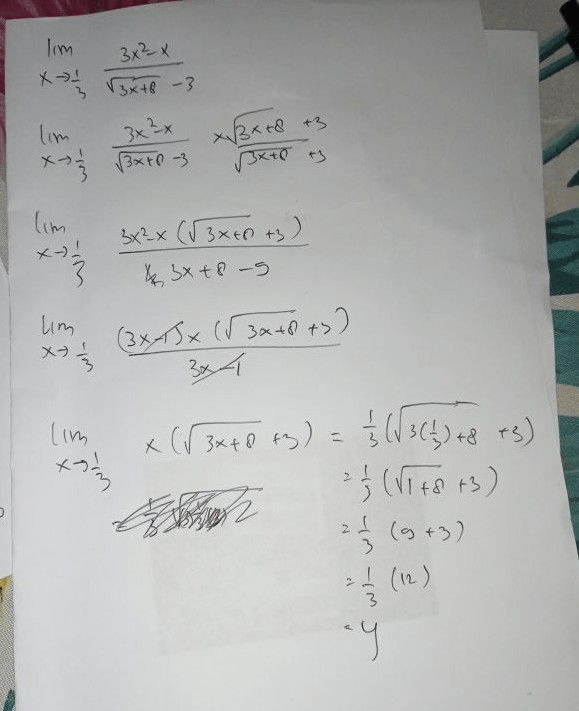 lim x→1/3 (3x²-x)/(√(3x+8) -3)
lim x→1/3 (3x²-x)/(√(3x+8) -3) × (√(3x+8) +3)/(√(3x+8) +3)
lim x→1/3 (3x²-x (√(3x+8) +3))/(3x+8 -9)
lim x→1/3 ((3x-1)x (√(3x+8) +3))/(3x-1)
lim x→1/3 x (√(3x+8) +3) = 1/3 (√(3(1/3)+8) +3)
= 1/3 (√(1+8) +3)
= 1/3 (9+3)
= 1/3 (12)
= 4